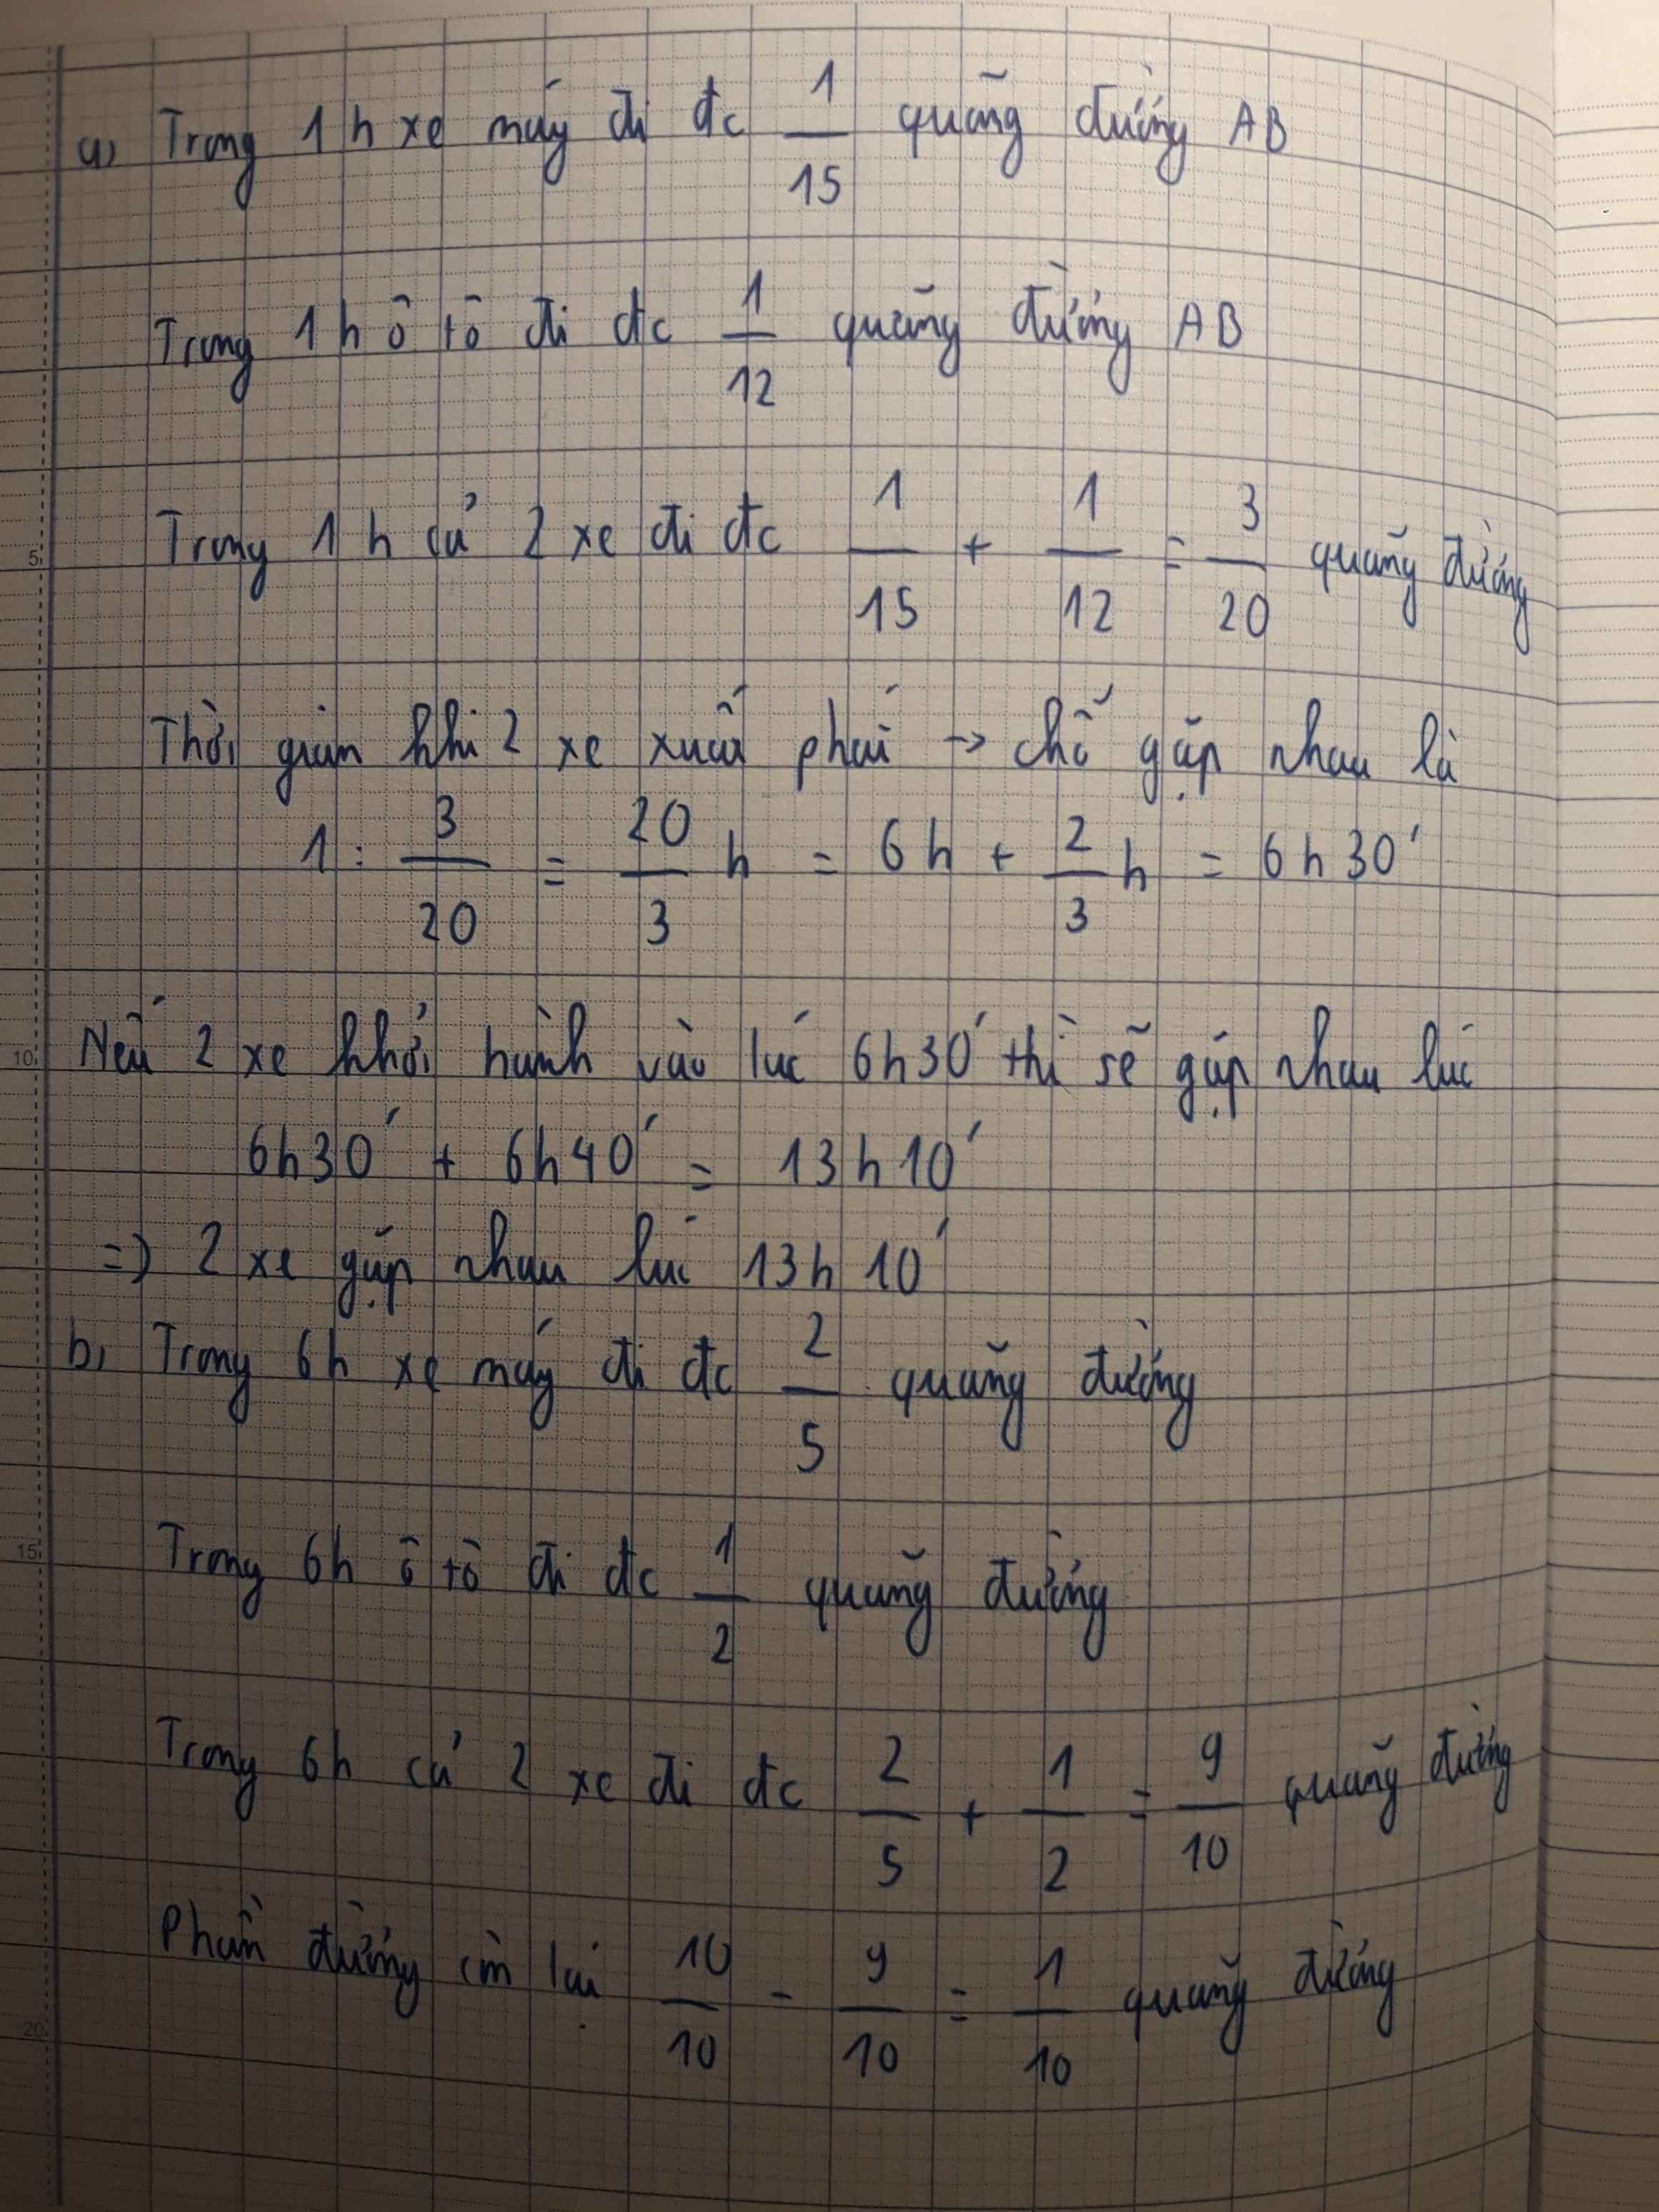 a, Trong 1h xe máy đi đc 1/15 quãng đường AB
Trong 1h ô tô đi đc 1/12 quãng đường AB
Trong 1h cả 2 xe đi đc 1/15 + 1/12 = 3/20 quãng đường
Thời gian khi 2 xe xuất phát → chỗ gặp nhau là
1 : 3/20 = 20/3 h = 6h + 2/3 h = 6h30'
Nếu 2 xe khởi hành vào lúc 6h30' thì sẽ gặp nhau lúc
6h30' + 6h40' = 13h10'
=) 2 xe gặp nhau lúc 13h10'
b, Trong 6h xe máy đi đc 2/5 quãng đường
Trong 6h ô tô đi đc 1/2 quãng đường
Trong 6h cả 2 xe đi đc 2/5 + 1/2 = 9/10 quãng đường
Phần đường còn lại 10/10 - 9/10 = 1/10 quãng đường
5
10
15
20